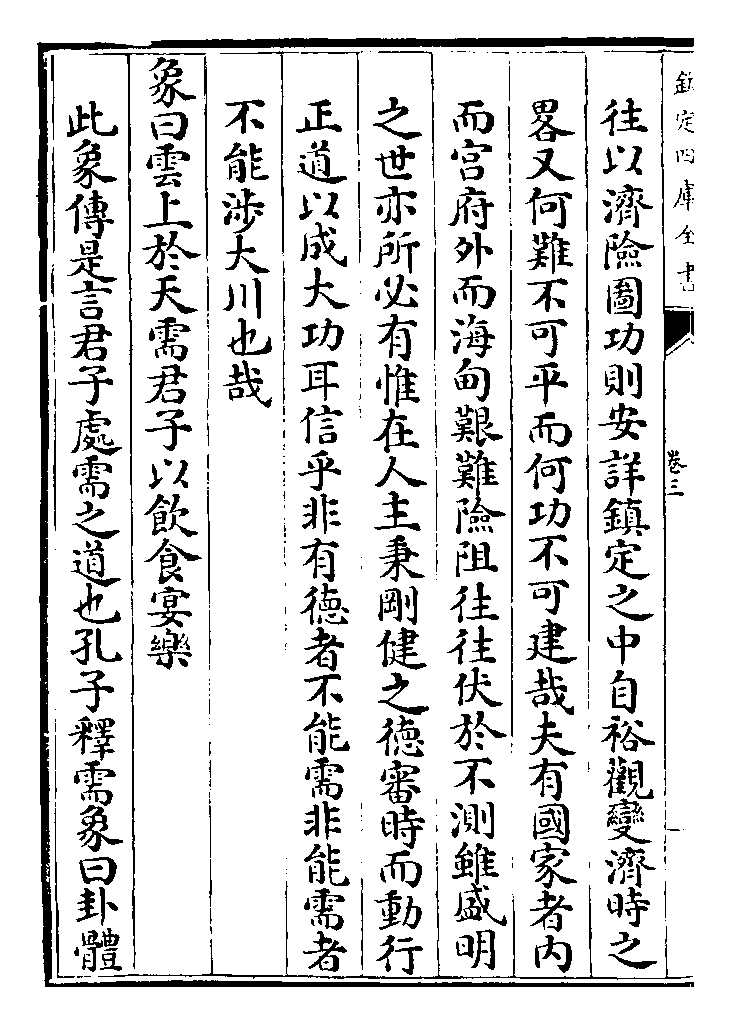 欽定四庫全書
卷三
往以濟險圖功則安詳鎮定之中自裕觀變濟時之
畧又何難不可平而何功不可建哉夫有國家者内
而宫府外而海甸艱難險阻往往伏於不測雖盛明
之世亦所必有惟在人主秉剛健之德審時而動行
正道以成大功耳信乎非有德者不能需非能需者
不能涉大川也哉
象曰雲上於天需君子以飲食宴樂
此象傳是言君子處需之道也孔子釋需象曰卦體